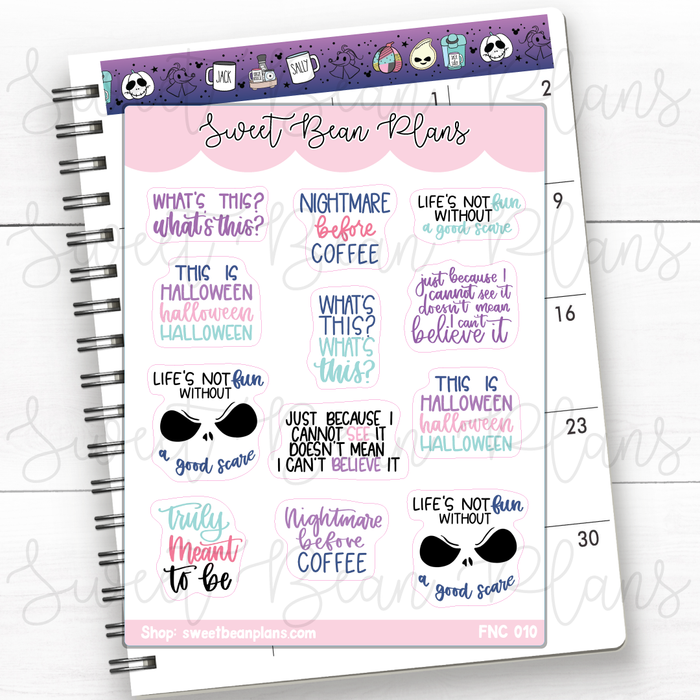 JACK
SALLY
1
2
9
16
23
30
Sweet Bean Plans
WHAT'S THIS?
what's this?
NIGHTMARE
before
COFFEE
LIFE'S NOT fun
WITHOUT
a good scare
THIS IS
HALLOWEEN
halloween
HALLOWEEN
WHAT'S
THIS?
WHAT'S
this?
just because I
cannot see it
doesn't mean
I can't
believe it
LIFE'S NOT fun
WITHOUT
a good scare
JUST BECAUSE I
CANNOT SEE IT
DOESN'T MEAN
I CAN'T BELIEVE IT
THIS IS
HALLOWEEN
halloween
HALLOWEEN
Truly
Meant
to be
Nightmare
before
COFFEE
LIFE'S NOT fun
WITHOUT
a good scare
Shop: sweetbeanplans.com
FNC 010
Sweet Bean Plans
Sweet Bean Plans
Sweet Bean Plans
Sweet Bean Plans